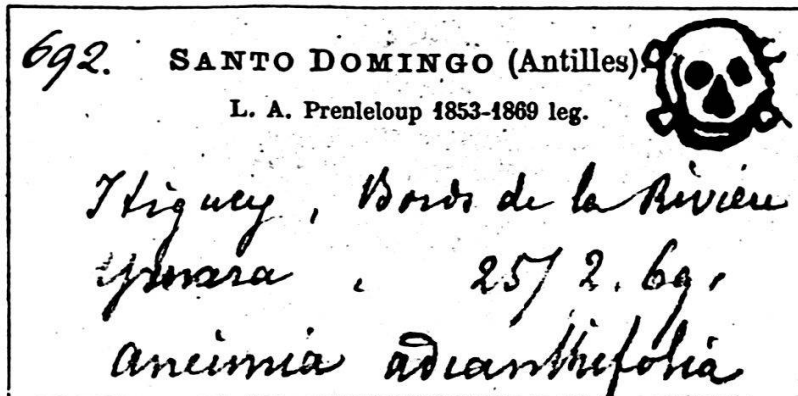 692. SANTO DOMINGO (Antilles)
L. A. Prenleloup 1853-1869 leg.
Higuey, Bords de la Rivière
25/2. 69.
aneimia adianthifolia